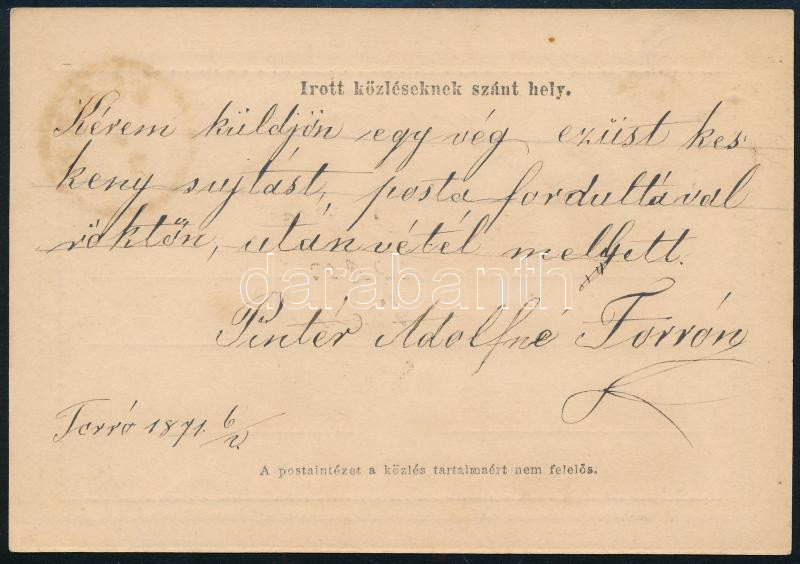 Irott közléseknek szánt hely.
Kérem küldjön egy vég ezüst kes
keny sujtást, posta fordultával
röktön, utánvétél mellyett.
darabanth
Pintér Adolfné Forrón
Forró 1871. 6/V.
A postaintézet a közlés tartalmaért nem felelős.